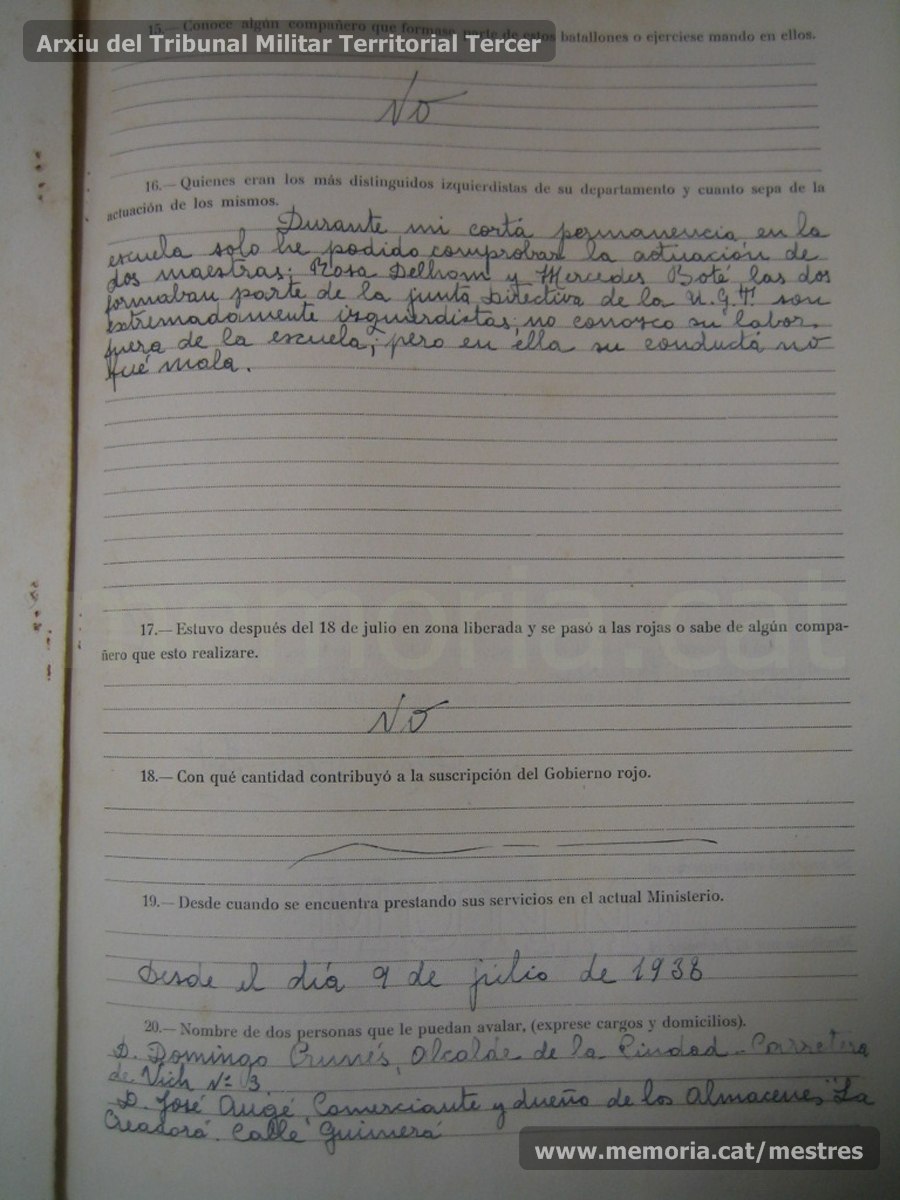 15.— Conoce algún compañero que formase parte de estos batallones o ejerciese mando en ellos.
Arxiu del Tribunal Militar Territorial Tercer
No
16.— Quienes eran los más distinguidos izquierdistas de su departamento y cuanto sepa de la
actuación de los mismos.
Durante mi corta permanencia en la
escuela solo he podido comprobar la actuación de
dos maestras; Rosa Delhom y Mercedes Boté, las dos
formaban parte de la junta Directiva de la U.G.T. son
extremadamente izquierdistas; no conozco su labor
fuera de la escuela; pero en ella su conducta no
fué mala.
memoria.cat
17.— Estuvo después del 18 de julio en zona liberada y se pasó a las rojas o sabe de algún compa-
ñero que esto realizare.
No
18.— Con qué cantidad contribuyó a la suscripción del Gobierno rojo.
19.— Desde cuando se encuentra prestando sus servicios en el actual Ministerio.
Desde el día 9 de julio de 1938
20.— Nombre de dos personas que le puedan avalar, (exprese cargos y domicilios).
D. Domingo Crunés, Alcalde de la Ciudad - Carretera
de Vich Nº 3
D. José Augé, Comerciante y dueño de los Almacenes "La
Creadora. Calle Guimerá
www.memoria.cat/mestres